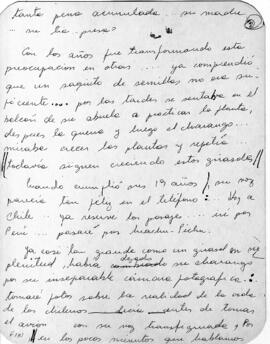 tanta pena acumulada... su madre
... su ba presa
Con los años fue transformando esta
preocupacion en otras .... ya comprendió
que un saquito de semillas no era su-
ficiente... por las tardes se sentaba en el
balcón de su abuela a practicar la flauta,
despues la quena y luego el charango...
miraba crecer las plantas y repetia...
todavia siguen creciendo estos girasoles
Cuando cumplió sus 19 años / su voz
parecia tan feliz en el teléfono: Voy a
Chile.. ya reservé los pasajes... iré por
Perú... pasaré por Machu-Pichu.
Ya casi tan grande como un girasol en su
plenitud, habia dejado su charango
por su inseparable cámara fotografica:
tomaré fotos sobre la realidad de la vida
de los chilenos antes de tomar
el avion con su voz transfigurada, Por
en los pocos minutos que hablamos